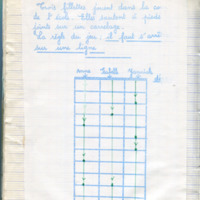 Trois fillettes jouent dans la co
de l'école. Elles sautent à pieds
joints sur un carrelage.
La règle du jeu : il faut s'arrêt
sur une ligne.
Isabelle